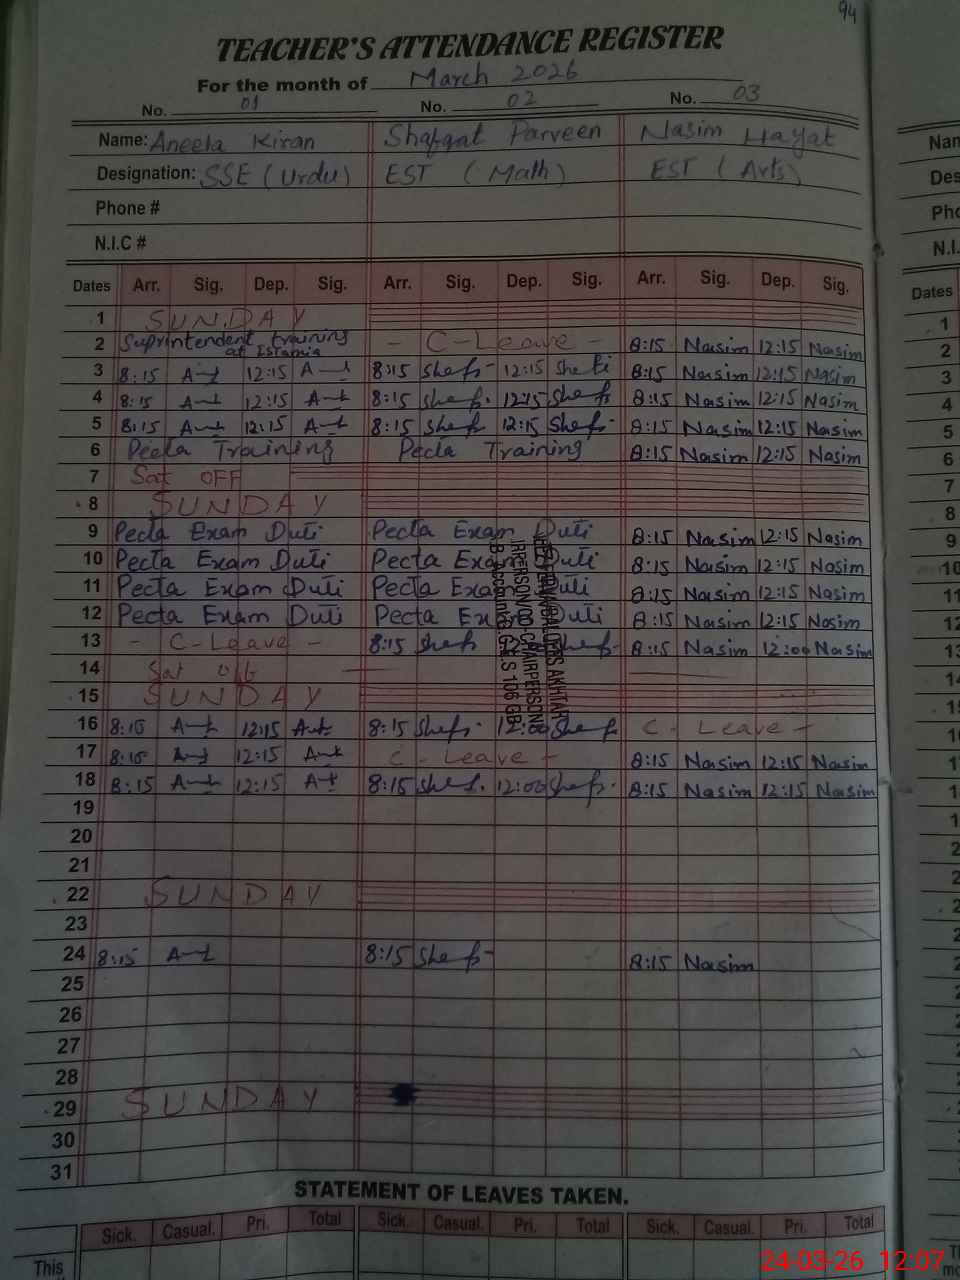 94
TEACHER'S ATTENDANCE REGISTER
For the month of March 2026
No. 01 No. 02 No. 03
Name: Aneela Kiran Shafqat Parveen Nasim Hayat
Designation: SSE (Urdu) EST (Math) EST (Arts)
Phone #
N.I.C #
Dates Arr. Sig. Dep. Sig. Arr. Sig. Dep. Sig. Arr. Sig. Dep. Sig.
1 SUNDAY
2 Suprintendent training at Islamia - C-Leave - 8:15 Nasim 12:15 Nasim
3 8:15 12:15 8:15 12:15 8:15 Nasim 12:15 Nasim
4 8:15 12:15 8:15 12:15 8:15 Nasim 12:15 Nasim
5 8:15 12:15 8:15 12:15 8:15 Nasim 12:15 Nasim
6 Pecta Training Pecta Training 8:15 Nasim 12:15 Nasim
7 Sat OFF
8 SUNDAY
9 Pecta Exam Duti Pecta Exam Duti 8:15 Nasim 12:15 Nasim
10 Pecta Exam Duti Pecta Exam Duti 8:15 Nasim 12:15 Nasim
11 Pecta Exam Duti Pecta Exam Duti 8:15 Nasim 12:15 Nasim
12 Pecta Exam Duti Pecta Exam Duti 8:15 Nasim 12:15 Nasim
13 - C-Leave - 8:15 8:15 Nasim 12:00 Nasim
14 Sat off
15 SUNDAY
16 8:15 12:15 8:15 12:00 C - Leave -
17 8:15 12:15 C - Leave - 8:15 Nasim 12:15 Nasim
18 8:15 12:15 8:15 12:00 8:15 Nasim 12:15 Nasim
19
20
21
22 SUNDAY
23
24 8:15 8:15 8:15 Nasim
25
26
27
28
29 SUNDAY
30
31
STATEMENT OF LEAVES TAKEN.
Sick. Casual. Pri. Total Sick. Casual. Pri. Total Sick. Casual. Pri. Total
This
24-03-26 12:07